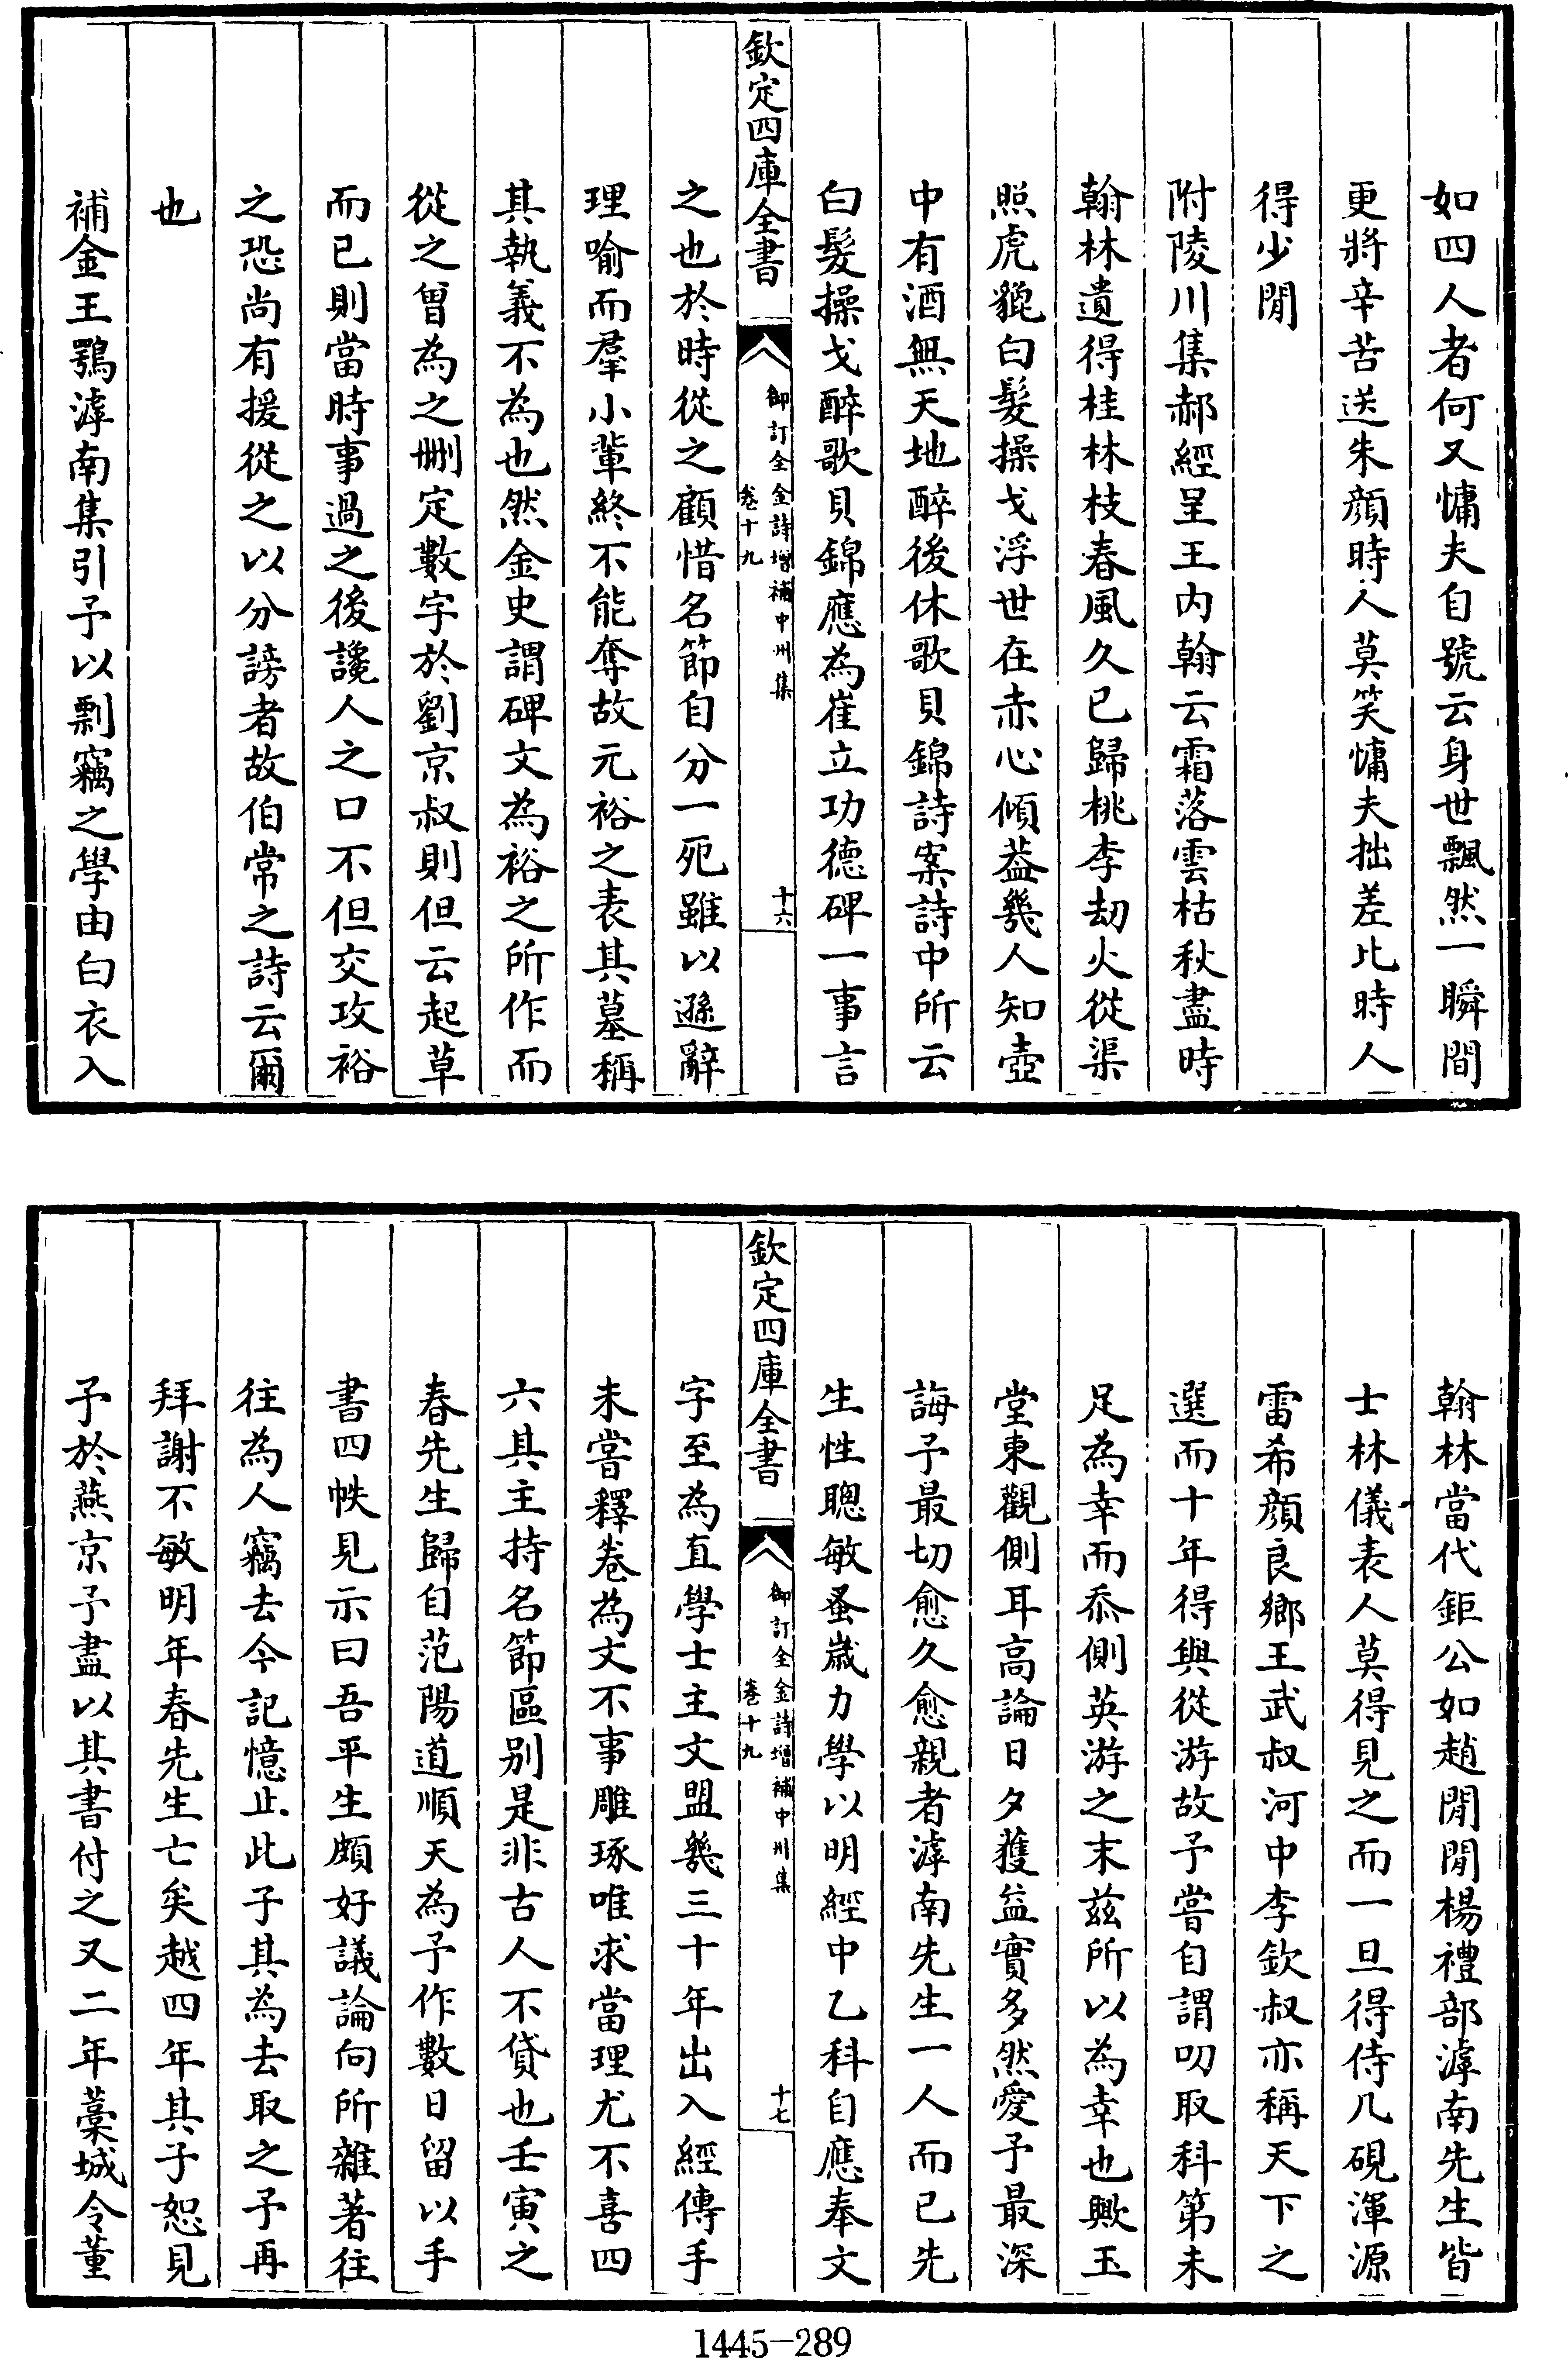 如四人者何又慵夫自號云身世飄然一瞬間
更將辛苦送朱顔時人莫笑慵夫拙差比時人
得少閒
附陵川集郝經呈王内翰云霜落雲枯秋盡時
翰林遺得桂林枝春風久已歸桃李劫火從渠
照虎貔白髮操戈浮世在赤心傾葢幾人知壺
中有酒無天地醉後休歌貝錦詩案詩中所云
白髮操戈醉歌貝錦應為崔立功德碑一事言
欽定四庫全書
御訂全金詩增補中州集
卷十九
十六
之也於時從之顧惜名節自分一死雖以遜辭
理喻而羣小輩終不能奪故元裕之表其墓稱
其執義不為也然金史謂碑文為裕之所作而
從之曾為之删定數字於劉京叔則但云起草
而已則當時事過之後讒人之口不但交攻裕
之恐尚有援從之以分謗者故伯常之詩云爾
也
補金王鶚滹南集引予以剽竊之學由白衣入
翰林當代鉅公如趙閒閒楊禮部滹南先生皆
士林儀表人莫得見之而一旦得侍几硯渾源
雷希顔良鄉王武叔河中李欽叔亦稱天下之
選而十年得與從游故予嘗自謂叨取科第未
足為幸而忝側英游之末兹所以為幸也歟玉
堂東觀側耳高論日夕獲益實多然愛予最深
誨予最切愈久愈親者滹南先生一人而已先
生性聰敏蚤歲力學以明經中乙科自應奉文
欽定四庫全書
御訂全金詩增補中州集
卷十九
十七
字至為直學士主文盟幾三十年出入經傳手
未嘗釋卷為文不事雕琢唯求當理尤不喜四
六其主持名節區别是非古人不貸也壬寅之
春先生歸自范陽道順天為予作數日留以手
書四帙見示曰吾平生頗好議論向所雜著往
往為人竊去今記憶止此子其為去取之予再
拜謝不敏明年春先生亡矣越四年其子恕見
予於燕京予盡以其書付之又二年藁城令董
1445-289